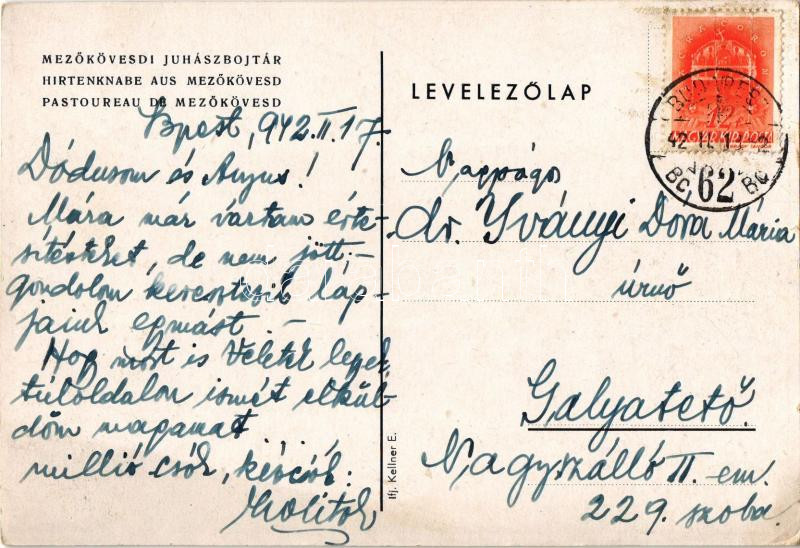 MEZŐKÖVESDI JUHÁSZBOJTÁR
HIRTENKNABE AUS MEZŐKÖVESD
PASTOUREAU DE MEZŐKÖVESD
Bpest, 942. II. 17.
Dódusom és Anyus!
Mára már vártam érte-
sítésteket, de nem jött,-
gondolom keresztezik láp-
jaink egymást.-
Hogy most is Veletek legyek
túloldalon ismét elkül-
döm magamat
millió csók, kézcsók:
LEVELEZŐLAP
BUDAPEST
62
12
MAGYAR KIR. POSTA
Nagyságos
dr. Iványi Dora Mária
úrnő
Galyatető.
Nagyszálló II. em.
229. szoba.
Ifj. Kellner E.